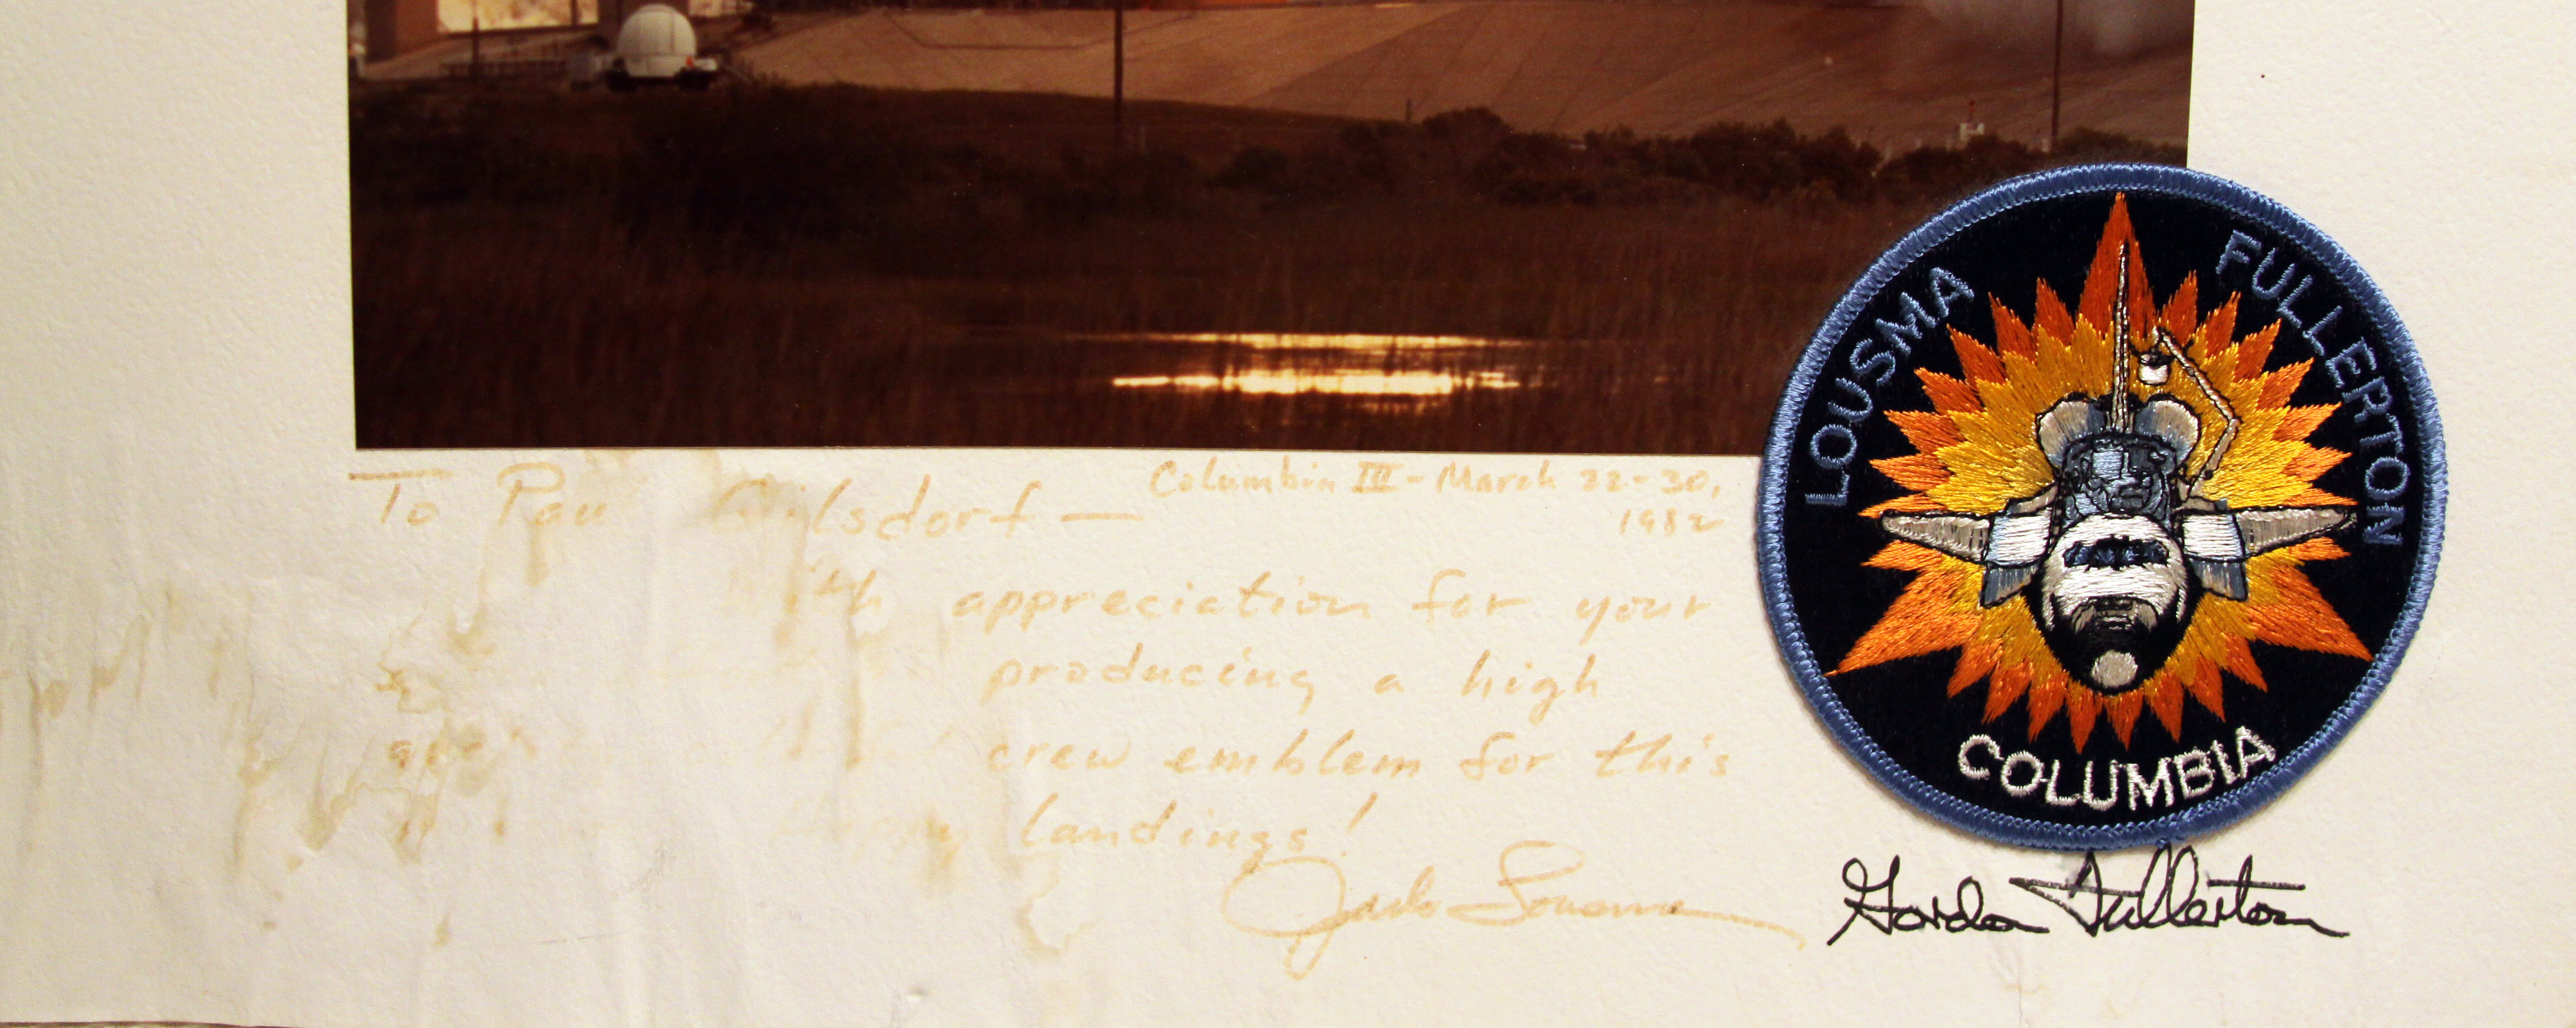 To Gilsdorf —
Columbia III - March 22-30,
1982
With appreciation for your
producing a high
crew emblem for this
landings!
Jack Lousma
LOUSMA
FULLERTON
COLUMBIA
Gordon Fullerton